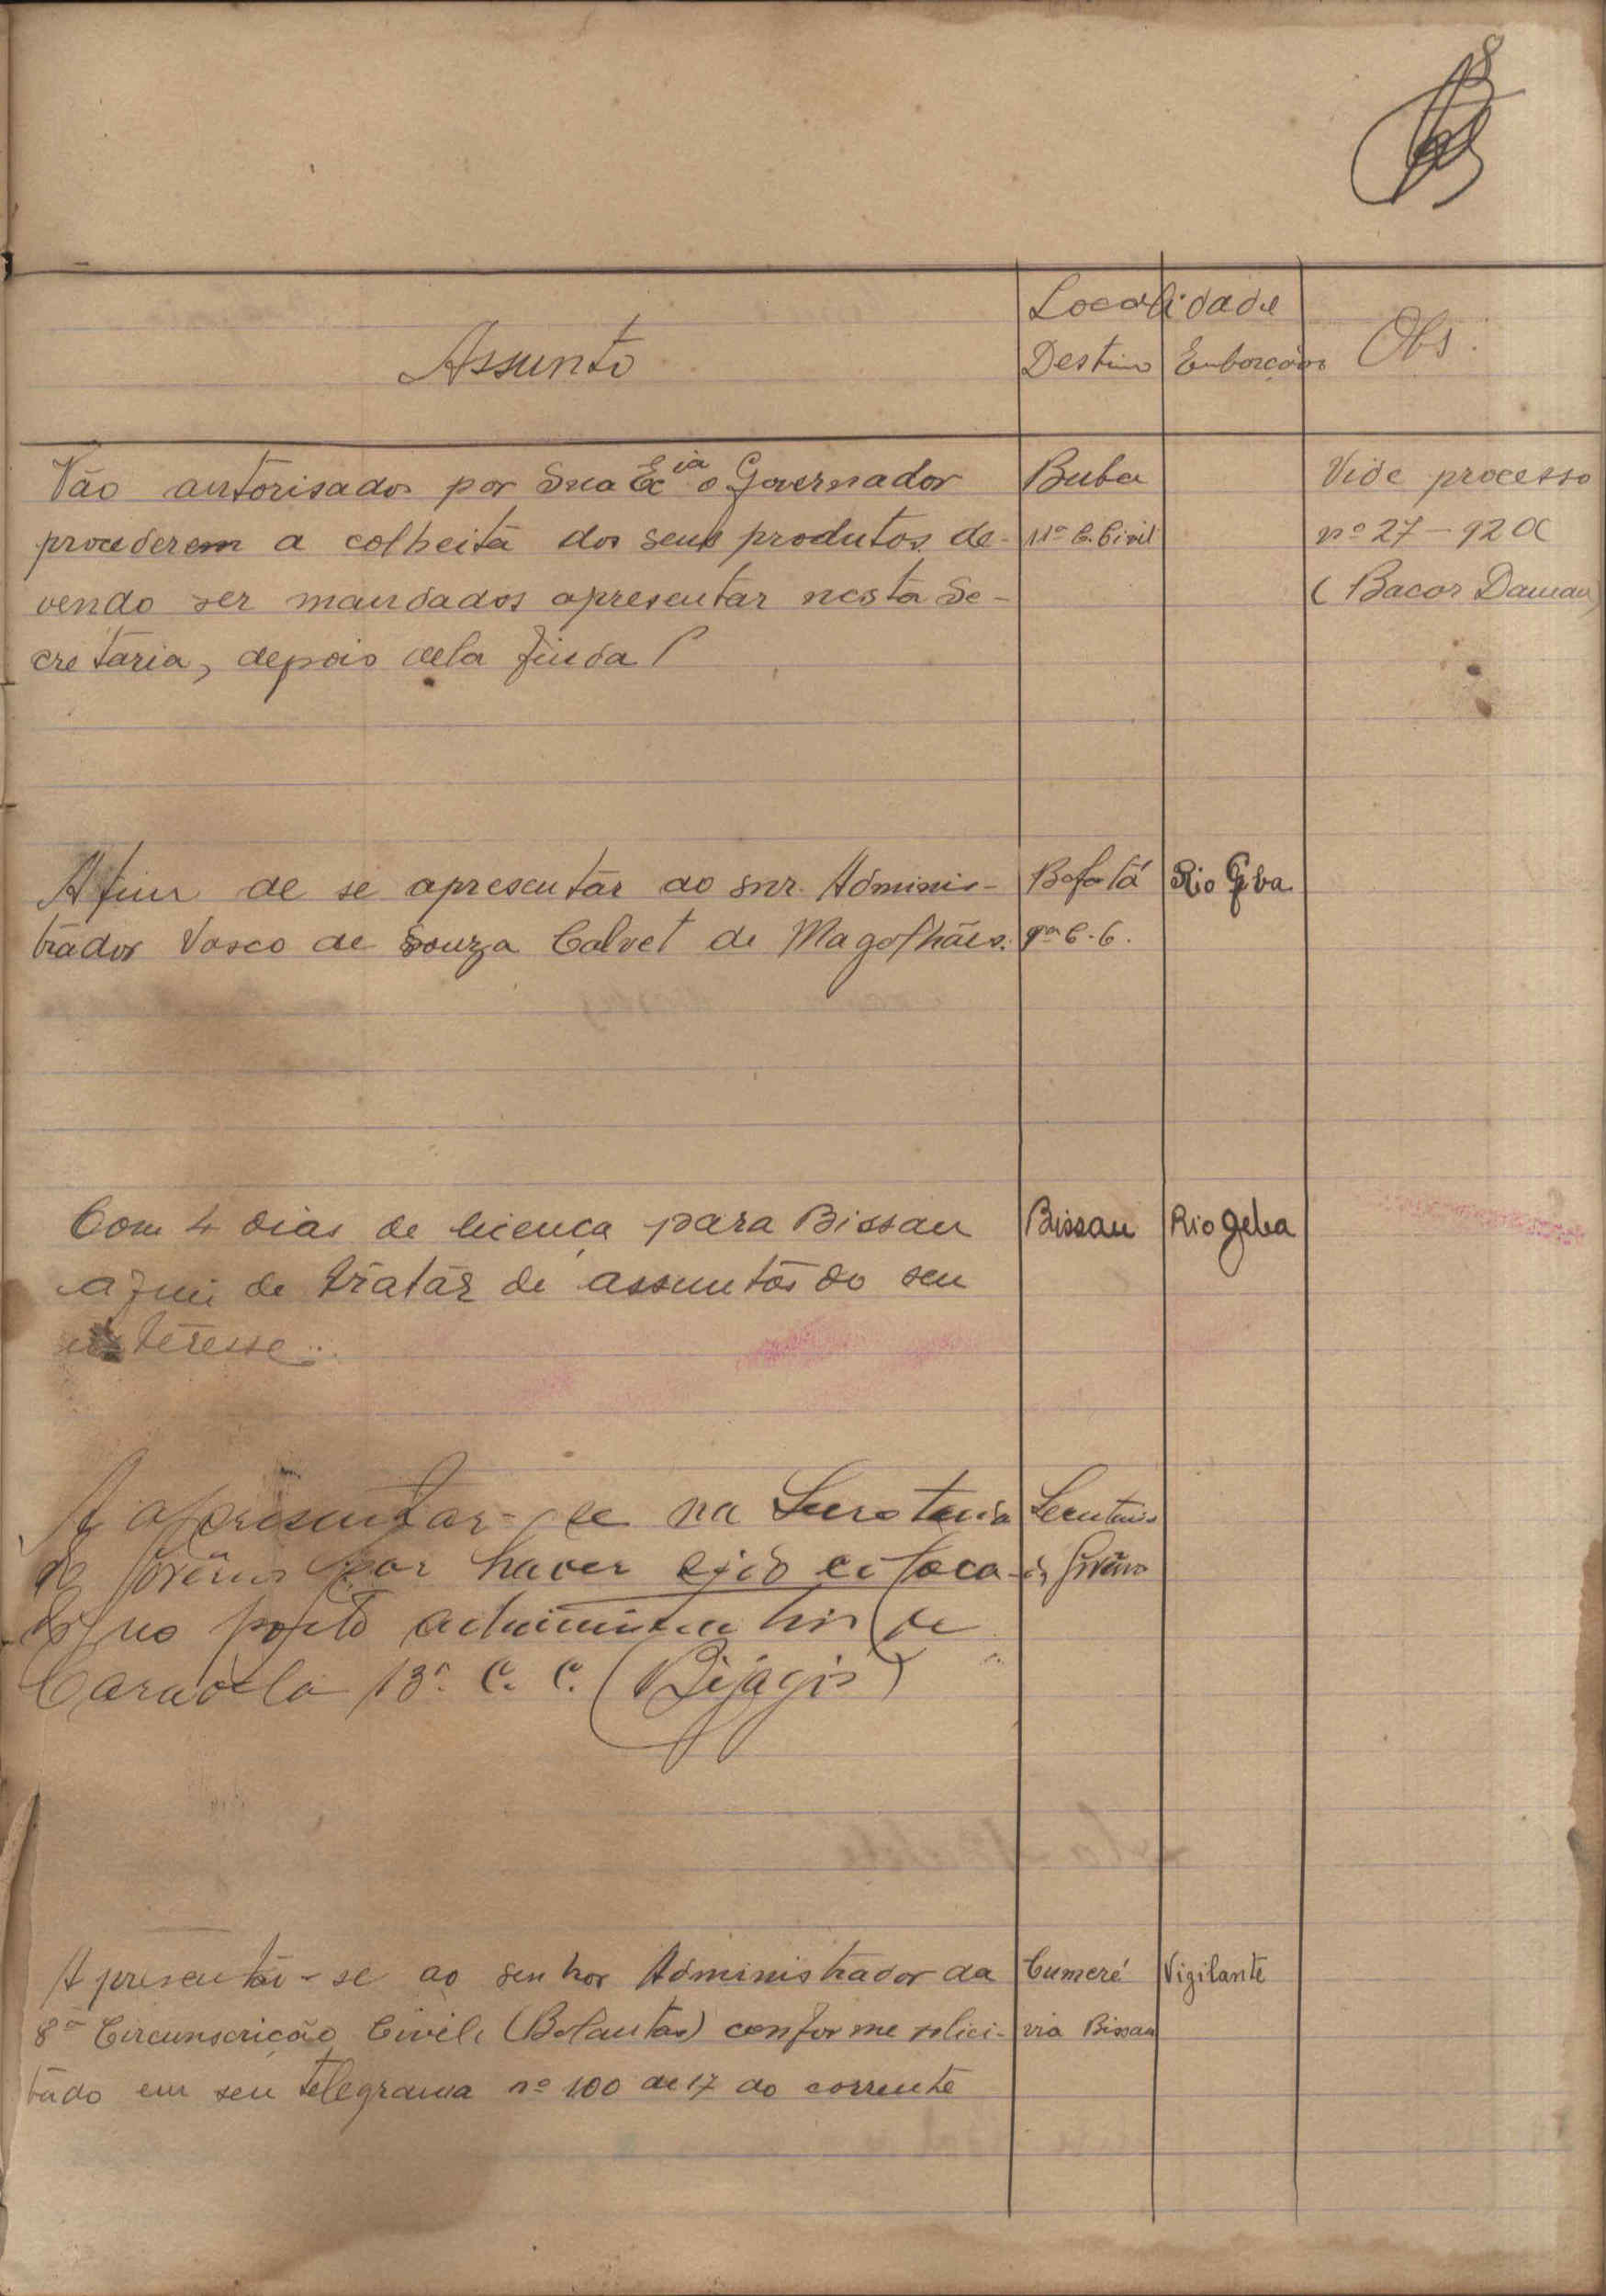 8
Localidade
Assunto
Destino Embarcação Obs.
Vão autorisados por Sua Ex.cia o Governador
procederem a colheita dos seus produtos de-
vendo ser mandados apresentar nesta Se-
cretaria, depois dela finda
Buba
11ª C. Civil
Vide processo
nº 27-92
(Bacar Daman)
A fim de se apresentar ao snr. Adminis-
trador Vasco de Souza Calvet de Magalhães.
Bafatá
C. C.
Rio Geba
Com 4 dias de licença para Bissau
afim de tratar de assuntos do seu
interesse.
Bissau
Rio Geba
A apresentar-se na Secretaria
de Govêrno por haver sido coloca-
do no posto administrativo de
Caravela 13ª C. C. (Bijagós)
Secretaria
de Govêrno
Apresentar-se ao senhor Administrador da
8ª Circunscrição Civil (Balantas) conforme solici-
tado em seu telegrama nº 100 de 17 do corrente
Cumeré
via Bissau
Vigilante